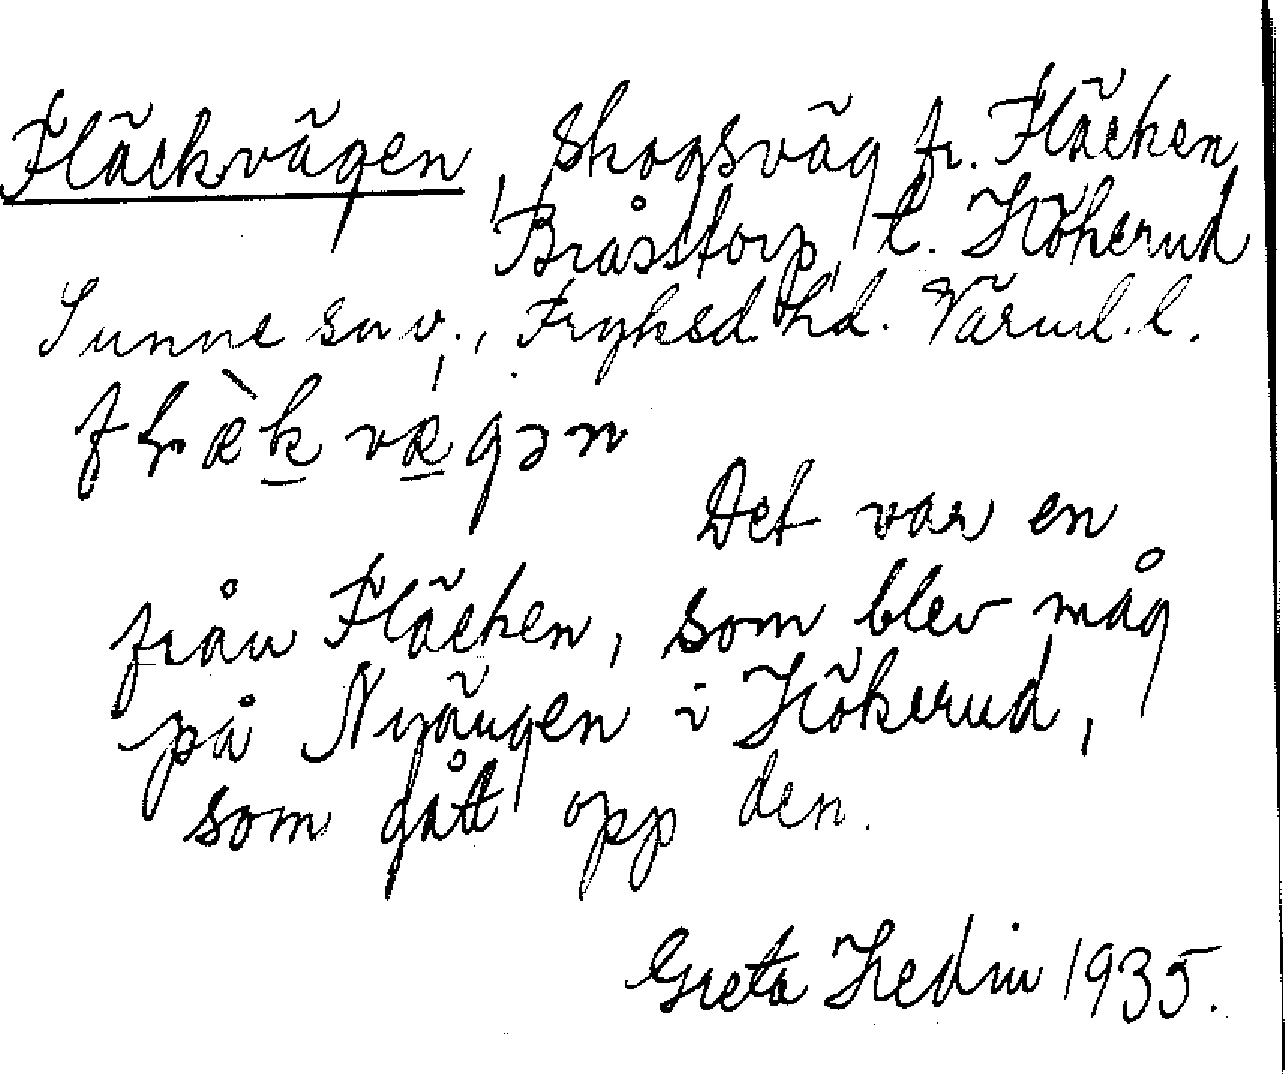 Fläckvägen, skogsväg fr. Fläcken,
Bråstorp, t. Hökerud
Sunne snv., Fryksd. hd. Värml. l.
Det var en
från Fläcken, som blev måg
på Nyängen i Hökerud,
som gått opp den.
Greta Hedin 1935.